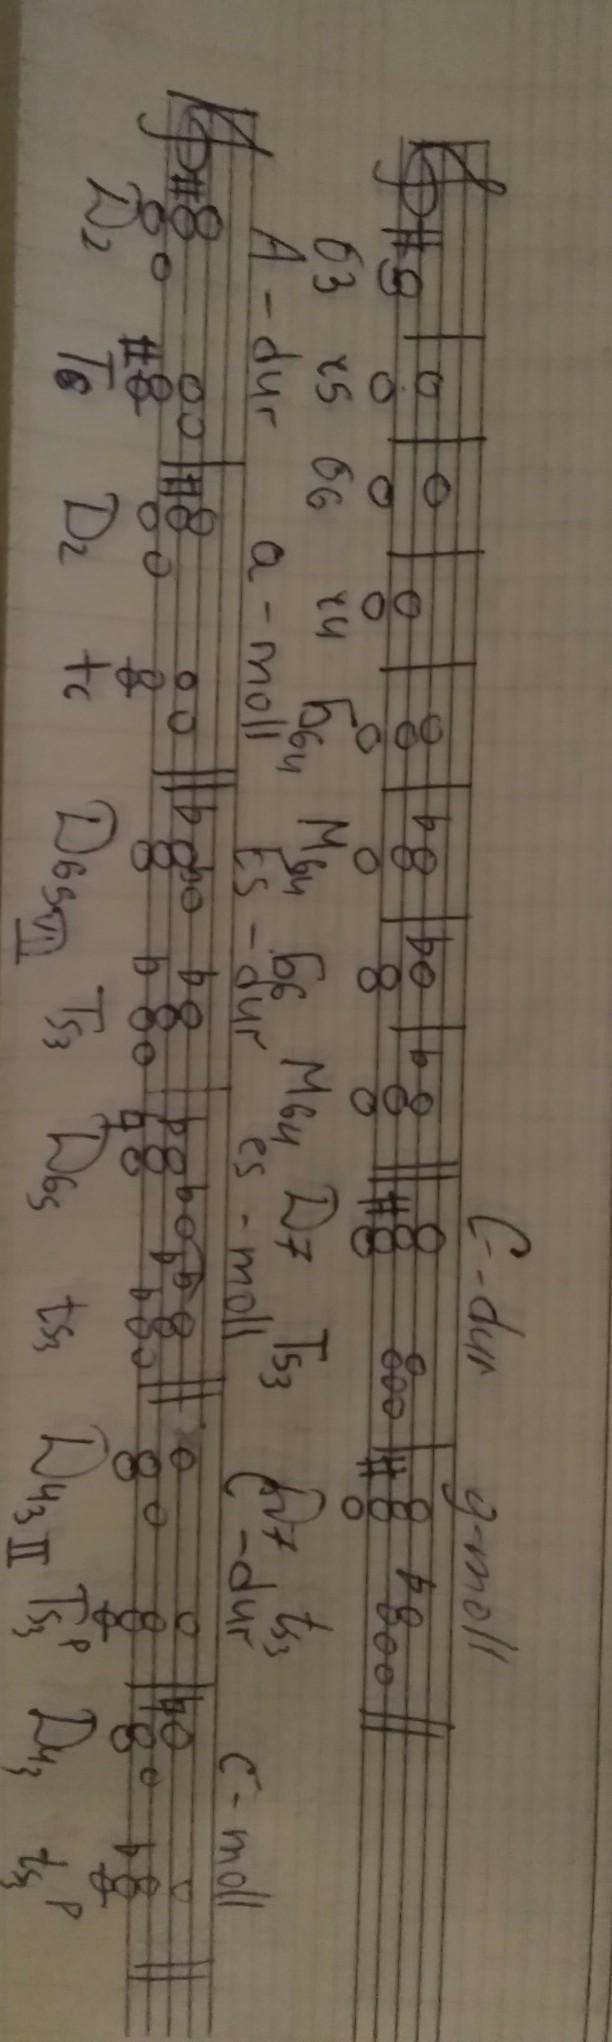 G-dur g-moll
б3 ч5 б6 ч4 Б64 М64 Б6 М64 D7 T53 D7 t53
A-dur a-moll Es-dur es-moll C-dur c-moll
D2 T6 D2 t6 D65 VII T53 D65 t53 D43 II T53 p D43 t53 p